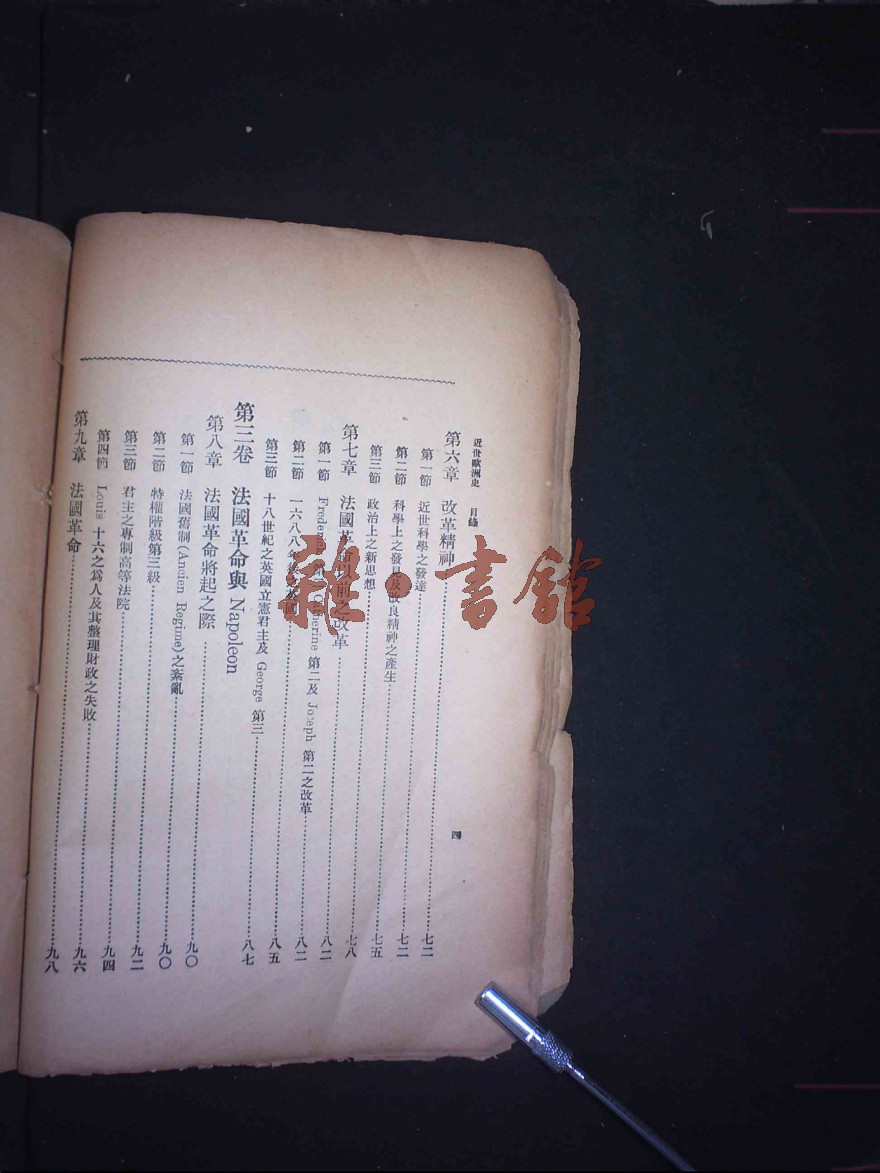 近世歐洲史 目錄 四
第六章 改革精神……七二
第一節 近世科學之發達……七二
第二節 科學上之發見及改良精神之產生……七五
第三節 政治上之新思想……七八
第七章 法國革命以前之改革……八二
第一節 Frederick 第二 Catherine 第二及 Joseph 第二之改革……八二
第二節 一六八八年 英國……八五
第三節 十八世紀之英國立憲君主及 George 第三……八七
第三卷 法國革命與 Napoleon
第八章 法國革命將起之際……九〇
第一節 法國舊制(Ancien Regime)之紊亂……九〇
第二節 特權階級第三級……九二
第三節 君主之專制高等法院……九四
第四節 Louis 十六之爲人及其整理財政之失敗……九六
第九章 法國革命……九八
雜·書館